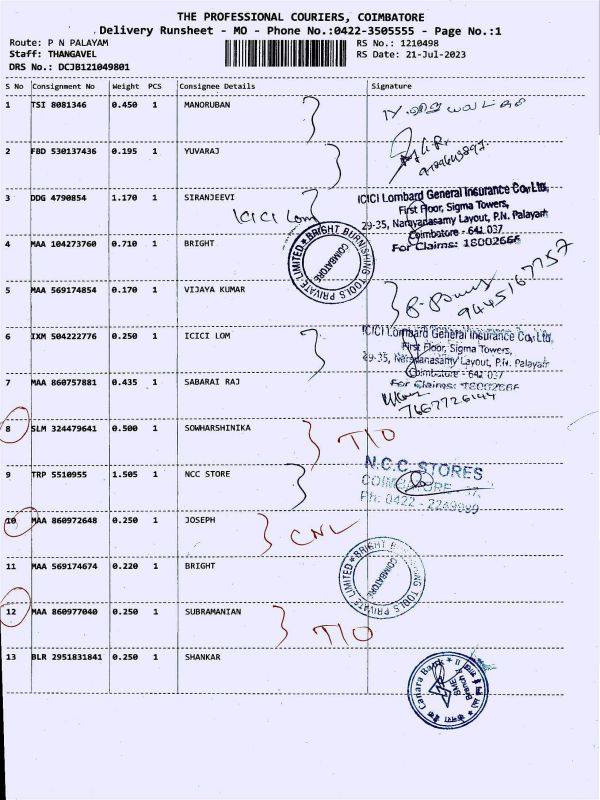 THE PROFESSIONAL COURIERS, COIMBATORE
Delivery Runsheet - MO - Phone No.:0422-3505555 - Page No.:1
Route: P N PALAYAM RS No.: 1210498
Staff: THANGAVEL RS Date: 21-Jul-2023
DRS No.: DCJB121049801
S No Consignment No Weight PCS Consignee Details Signature
1 TSI 8081346 0.450 1 MANORUBAN
2 FBD 530137436 0.195 1 YUVARAJ
3 DDG 4790854 1.170 1 SIRANJEEVI
ICICI Lom
ICICI Lombard General Insurance Co. Ltd,
First Floor, Sigma Towers,
29-35, Narayanasamy Layout, P.N. Palayam
Coimbatore - 641 037
For Claims: 18002666
4 MAA 104273760 0.710 1 BRIGHT
BRIGHT BURNISHING TOOLS PRIVATE LIMITED
COIMBATORE
5 MAA 569174854 0.170 1 VIJAYA KUMAR
9445167757
6 IXM 504222776 0.250 1 ICICI LOM
ICICI Lombard General Insurance Co. Ltd,
First Floor, Sigma Towers,
29-35, Narayanasamy Layout, P.N. Palayam
Coimbatore - 641 037
For Claims: 18002666
7 MAA 860757881 0.435 1 SABARAI RAJ
8 SLM 324479641 0.500 1 SOWHARSHINIKA
T/O
9 TRP 5510955 1.505 1 NCC STORE
N.C.C. STORES
COIMBATORE
Ph: 0422 - 2249090
10 MAA 860972648 0.250 1 JOSEPH
CNL
11 MAA 569174674 0.220 1 BRIGHT
BRIGHT BURNISHING TOOLS PRIVATE LIMITED
COIMBATORE
12 MAA 860977040 0.250 1 SUBRAMANIAN
T/O
13 BLR 2951831841 0.250 1 SHANKAR
Canara Bank
SME Branch